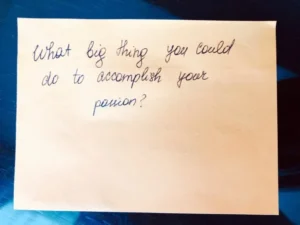 What big thing you could
do to accomplish your
passion?